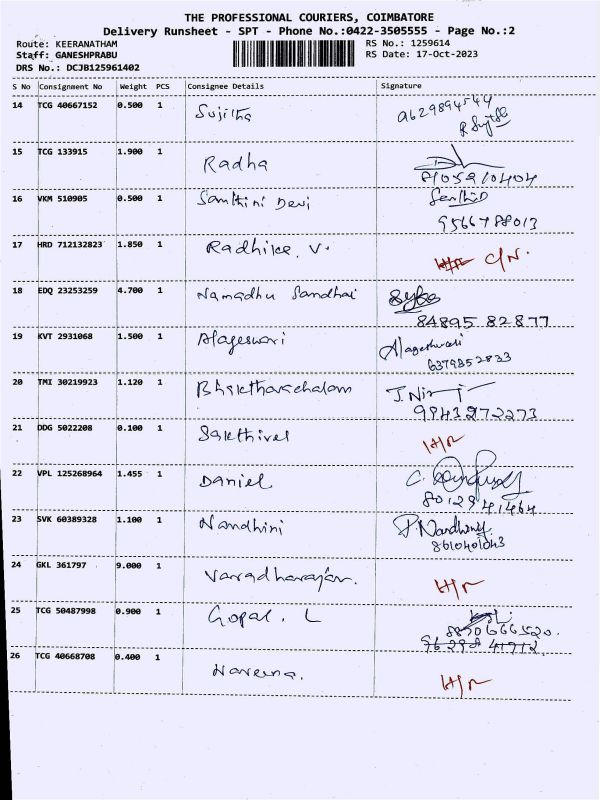 THE PROFESSIONAL COURIERS, COIMBATORE
Delivery Runsheet - SPT - Phone No.:0422-3505555 - Page No.:2
Route: KEERANATHAM RS No.: 1259614
Staff: GANESHPRABU RS Date: 17-Oct-2023
DRS No.: DCJB125961402
S No Consignment No Weight PCS Consignee Details Signature
14 TCG 40667152 0.500 1 Sujitha 9629894544
15 TCG 133915 1.900 1 Radha 8105910404
16 VKM 510905 0.500 1 Santhini Devi
9566788013
17 HRD 712132823 1.850 1 Radhika. V. C/N.
18 EDQ 23253259 4.700 1 Namadhu Sandhai
84895 82877
19 KVT 2931068 1.500 1 Alageswari Alageshwari
6379852833
20 TMI 30219923 1.120 1 Bhakthavachalam
9943272273
21 DDG 5022208 0.100 1 Sakthivel H/R
22 VPL 125268964 1.455 1 Daniel
80129 41464
23 SVK 60389328 1.100 1 Nandhini P. Nandhini
8610401043
24 GKL 361797 9.000 1 Varadharajan. H/R
25 TCG 50487998 0.900 1 Gopal. L
8870666520.
96298 41912
26 TCG 40668708 0.400 1 Naveena. H/R